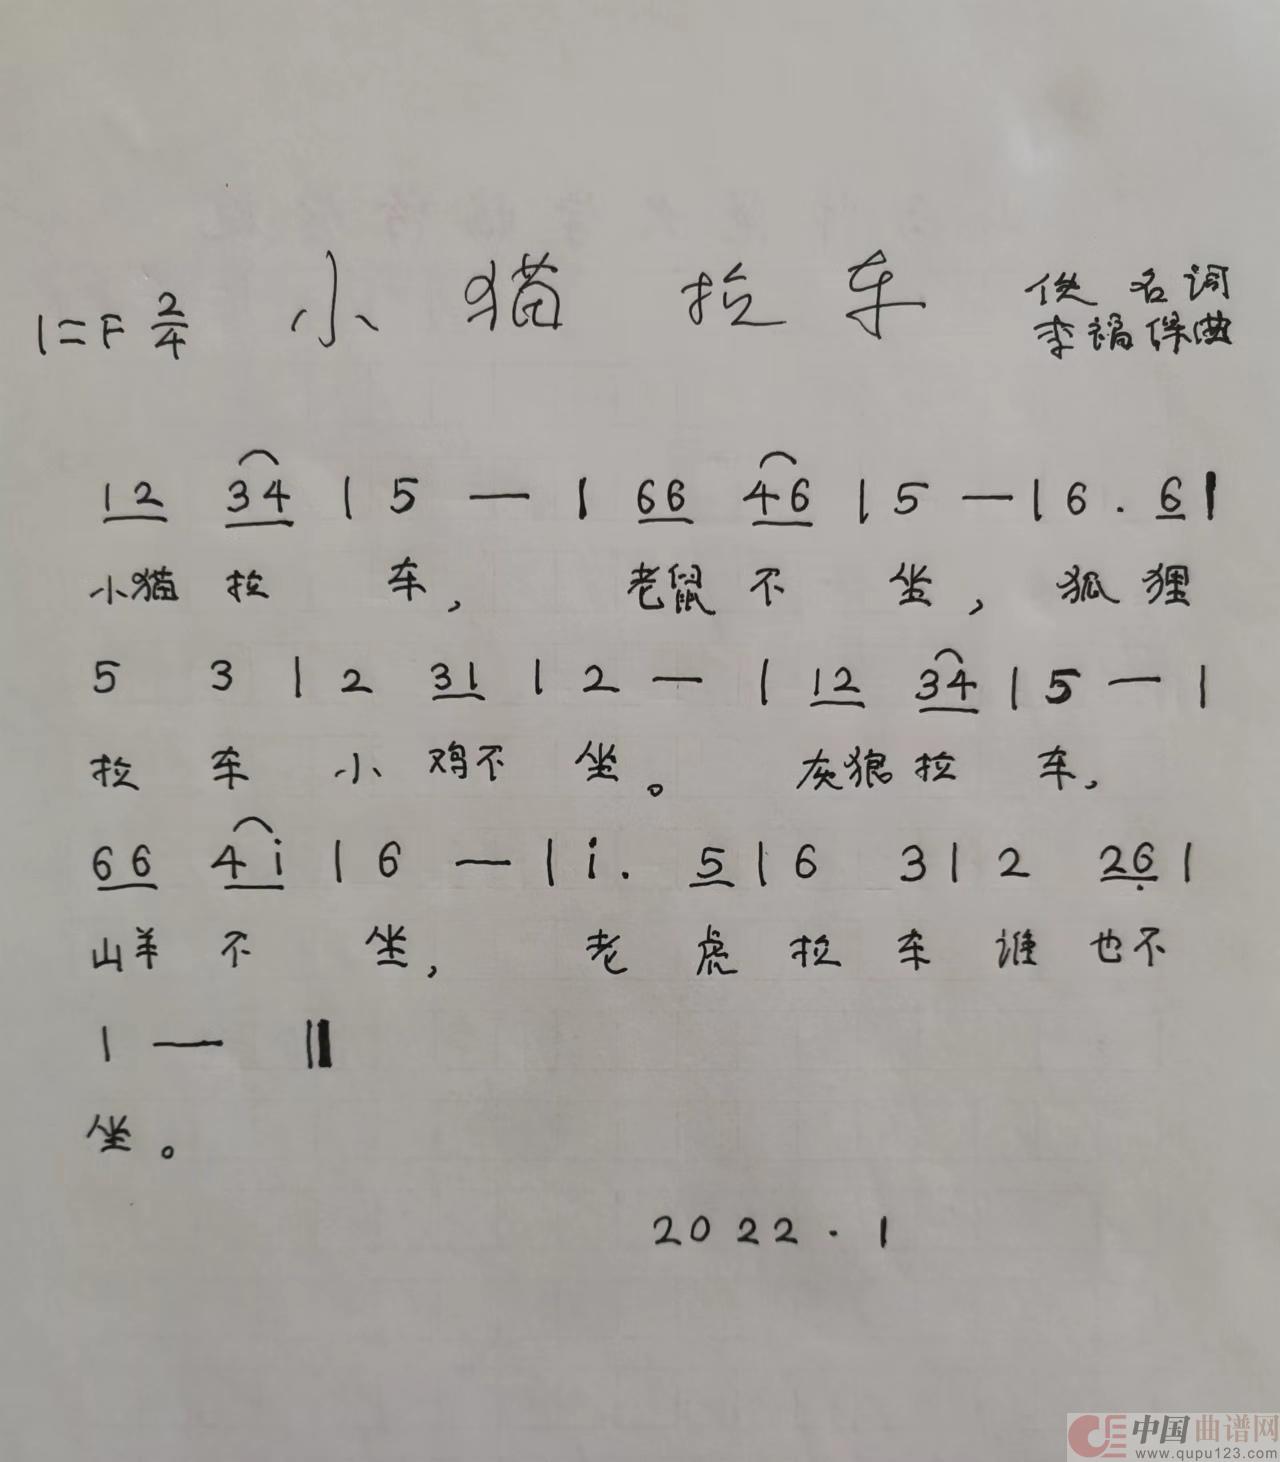 1=F 2/4 小猫拉车 佚名词
李福保曲
12 34 | 5 — | 66 46 | 5 — | 6 . 6 |
小猫 拉 车, 老鼠 不 坐, 狐 狸
5 3 | 2 31 | 2 — | 12 34 | 5 — |
拉 车 小 鸡不 坐。 灰狼 拉 车,
66 4i | 6 — | i . 5 | 6 3 | 2 26̣ |
山羊 不 坐, 老 虎 拉 车 谁 也不
1 — ‖
坐。
2022 . 1
中国曲谱网
www.qupu123.com